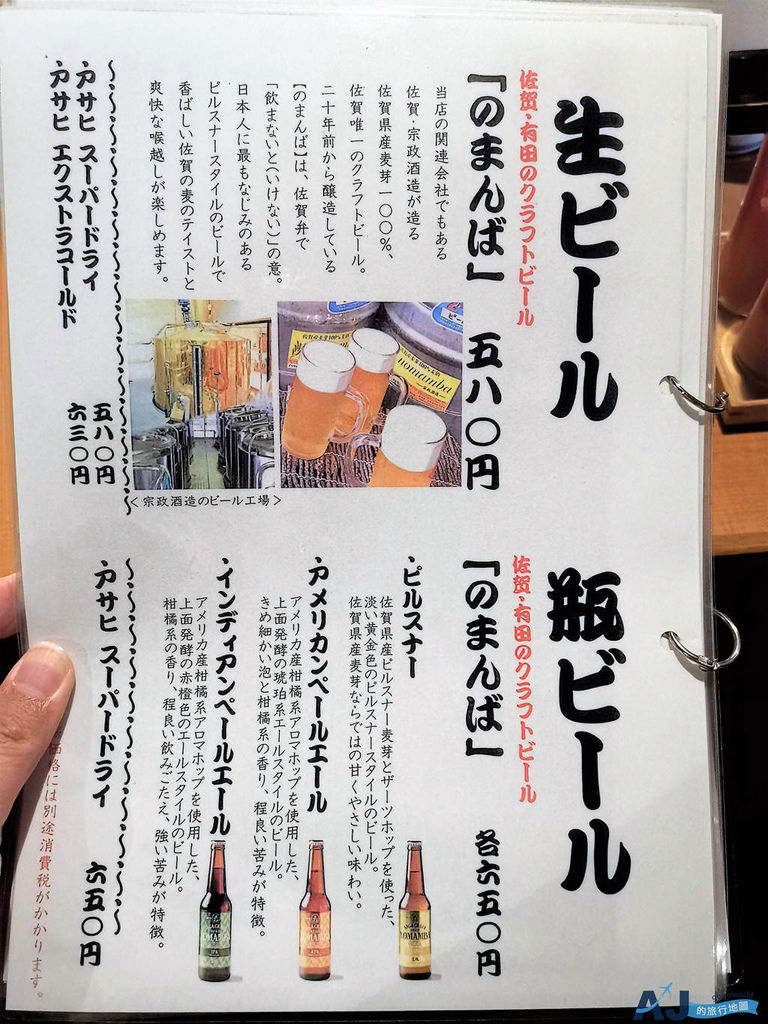 生ビール
佐賀・有田のクラフトビール
「のまんば」 五八〇円
当店の関連会社でもある
佐賀・宗政酒造が造る
佐賀県産麦芽一〇〇％、
佐賀唯一のクラフトビール。
二十年前から醸造している
【のまんば】は、佐賀弁で
「飲まないと（いけない）」の意。
日本人に最もなじみのある
ピルスナースタイルのビールで
香ばしい佐賀の麦のテイストと
爽快な喉越しが楽しめます。
nomamba
＜宗政酒造のビール工場＞
アサヒ スーパードライ 五八〇円
アサヒ エクストラコールド 六三〇円
瓶ビール
佐賀・有田のクラフトビール
「のまんば」 各六五〇円
・ピルスナー
佐賀県産ピルスナー麦芽とザーツホップを使った、
淡い黄金色のピルスナースタイルのビール。
佐賀県産麦芽ならではの甘くやさしい味わい。
・アメリカンペールエール
アメリカ産柑橘系アロマホップを使用した、
上面発酵の琥珀系エールスタイルのビール。
きめ細かい泡と柑橘系の香り、程良い苦みが特徴。
・インディアンペールエール
アメリカ産柑橘系アロマホップを使用した、
上面発酵の赤橙色のエールスタイルのビール。
柑橘系の香り、程良い飲みごたえ、強い苦みが特徴。
NOMAMBA
アサヒ スーパードライ 六五〇円
価格には別途消費税がかかります。
AJ
的旅行地圖